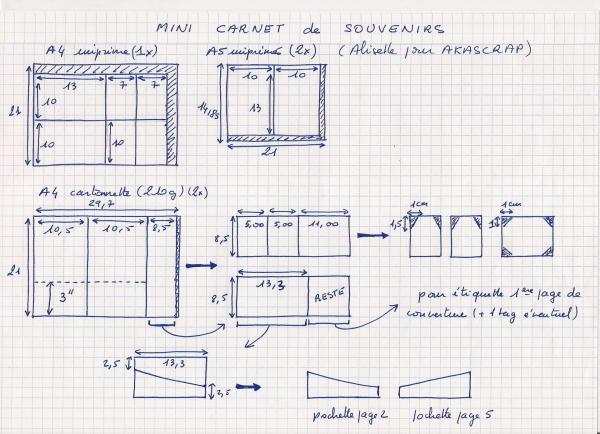 MINI CARNET de SOUVENIRS
A4 imprimé (1x) A5 imprimés (2x) (Aliselle pour AKASCRAP)
13 7 7
10
10 10
21
10 10
13
14,85
21
A4 cartonnette (210g) (2x)
29,7
10,5 10,5 8,5
21
3"
5,00 5,00 11,00
8,5
1cm 1cm
1,5 1
13,3
8,5
RESTE
pour étiquette 1ère page de
couverture (+ 1 tag éventuel)
13,3
2,5
3,5
pochette page 2 pochette page 5